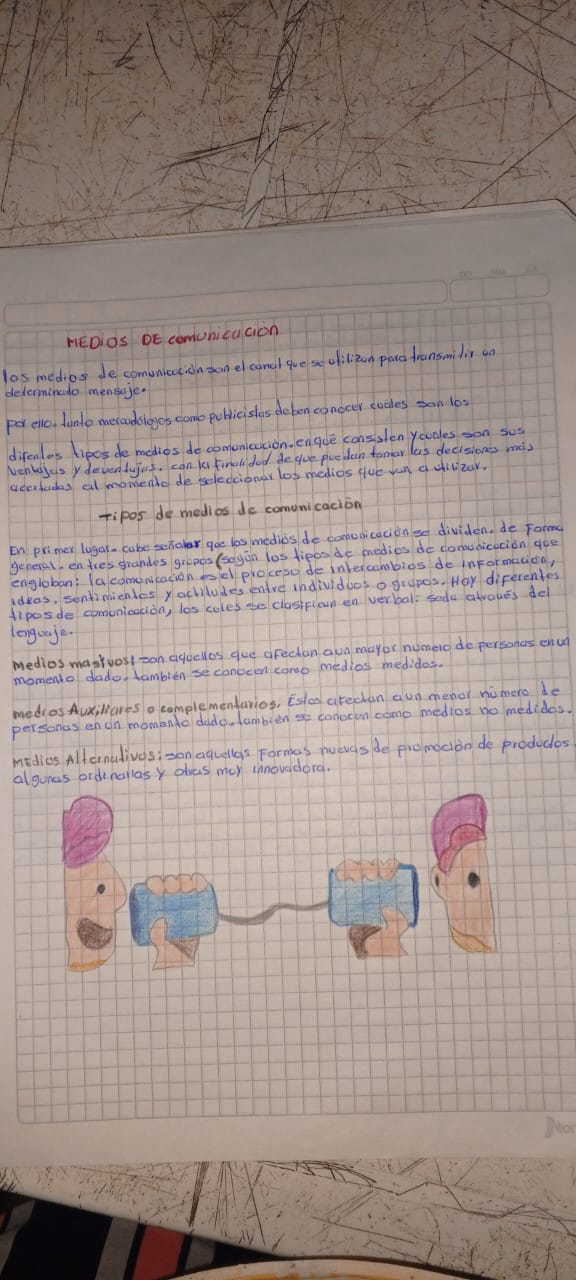 MEDIOS DE comunicación
los medios de comunicación son el canal que se utilizan para transmitir un
determinado mensaje.
por ello. tanto mercadólogos como publicistas deben conocer cuáles son los
difentes tipos de medios de comunicación. en qué consisten y cuales son sus
ventajas y deventajas. con la finalidad de que puedan tomar las decisiones más
acertadas al momento de seleccionar los medios que van a utilizar.
Tipos de medios de comunicación
En primer lugar. cabe señalar que los medios de comunicación se dividen. de Forma
general. en tres grandes grupos (según los tipos de medios de comunicación que
engloban: la comunicación es el proceso de intercambios de información,
ideas, sentimientos y actitudes entre individuos o grupos. Hay diferentes
tipos de comunicación, los cules se clasifican en verbal: seda através del
lenguaje.
Medios masivos: son aquellos que afectan aun mayor número de personas en un
momento dado. también se conocen como medios medidos.
medios Auxiliares o complementarios. Éstos afectan a un menor número de
personas en un momento dado. también se conocen como medios no medidos.
Medios Alternativos: son aquellas Formas nuevas de promoción de productos
algunas ordinarias y otras muy innovadora.